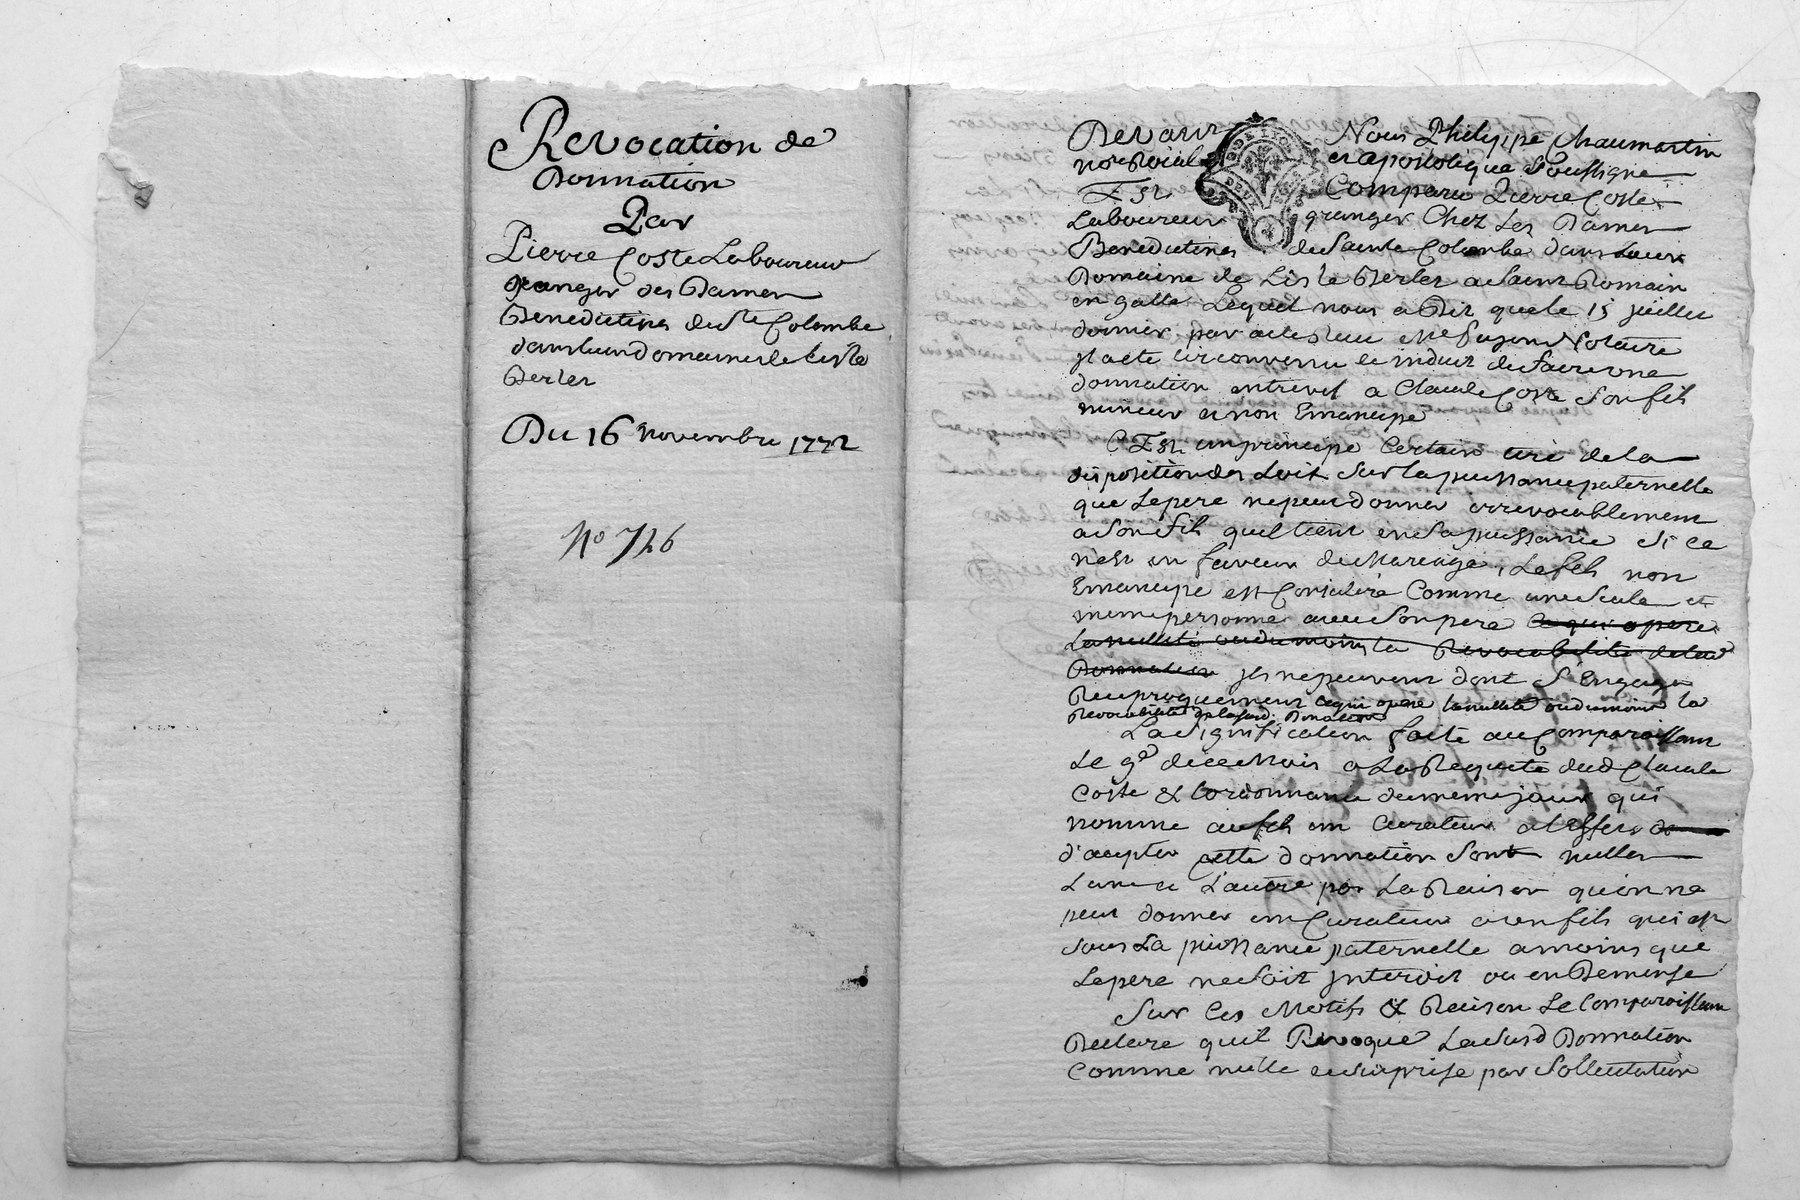 Revocation de
Donnation
Par
Pierre Coste Laboureur
granger des Damen
Benedictines de Ste Colombe
dans leur domaine de Lisle
Berles
Du 16 novembre 1772
No 726
Devant Nous Philippe Chaumartin
nore Roial et apostolique Soussigné
Est Comparu Pierre Coste
Laboureur granger Chez Les Damen
Benedictines de Sainte Colombe dans Leur
Domaine de Lisle Berles a Saint Romain
en galle Lequel nous a Dit que le 15 juillet
dernier par acte Reçu Me Notaire
jl a eté circonvenu et induit de faire une
donnation entrevif a Claude Coste Son fils
mineur et non Emancipé
C'Est un principe Certain tiré de la
disposition des Loix Sur la puissance paternelle
que Le pere ne peut donner irrevocablement
a Son fils quil tient en Sa puissance Si ce
n'est en faveur de Mariage, Le fils non
Emancipé est Consideré Comme une Seule et
meme personne avec Son pere ce qui opere
La nullité ou du moins la Revocabilité de lad
Donnation jls ne peuvent dont S'Engager
Reciproquement ce qui opere la nullité ou du moins la
Revocabilité de la susd. Donation
La Signification faite au Comparoissant
Le 9e de ce Mois a La Requete dud Claude
Coste & Lordonnance du meme jour qui
nomme au fils un Curateur a l'Effet de
d'accepter cette donnation Sont nulles
L'une et L'autre par La Raison qu'on ne
peut donner un Curateur a un fils qui est
sous La puissance paternelle a moins que
Le pere ne Soit jnterdit ou en Demense
Sur Ces Motifs & Raison Le Comparoissant
Declare quil Revoque La Susd Donnation
Comme nulle et Surprise par Sollicitation